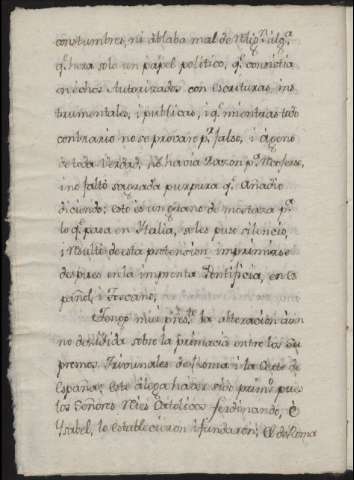 costumbres, ni ablaba mal de Relig.n alg.a
q.e hera solo un papel politico, q.e consistia
en echos Autorizados con escrituras ins
trumentales, i publicas, i q.e mientras todo
contrario no se provare p.r falso, i ageno
de toda verdad, No havia Razon p.a
i no faltò sagrada purpura q.e añadio
diciendo; esto es un grano de mostaza p.a
lo q.e pasa en Italia, se les puso silencio,
i Resultò de esta pretencion imprimirse
despues en la imprenta Pontificia, en Es
pañol, i Toscano,
Tengo mui pres.te la alteracion aun
no decidida sobre la primacia entre los Su
premos Trivunales de Roma i la Corte de
España; esta alega haver sido prim.o pues
los Señores Reies Catolicos ferdinando, è
Ysabel, lo establecieron i fundaron; El de Roma